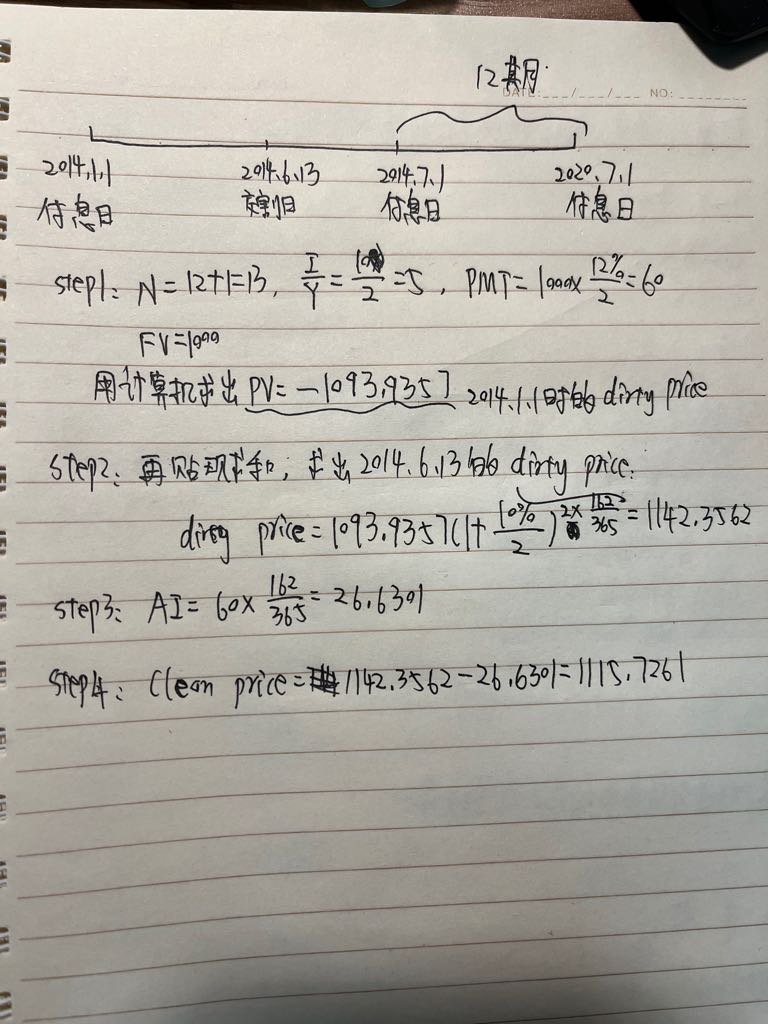 12期
DATE: / / NO:
2014.1.1 2014.6.13 2014.7.1 2020.7.1
付息日 交割日 付息日 付息日
step1: N=12+1=13, I/Y=10/2=5, PMT=1000×12%/2=60
FV=1000
用计算机求出 PV=-1093.9357 2014.1.1时的 dirty price
step2: 再贴现求和, 求出2014.6.13的 dirty price:
dirty price=1093.9357(1+10%/2)^(2×162/365)=1142.3562
step3: AI=60×162/365=26.6301
step4: Clean price=1142.3562-26.6301=1115.7261